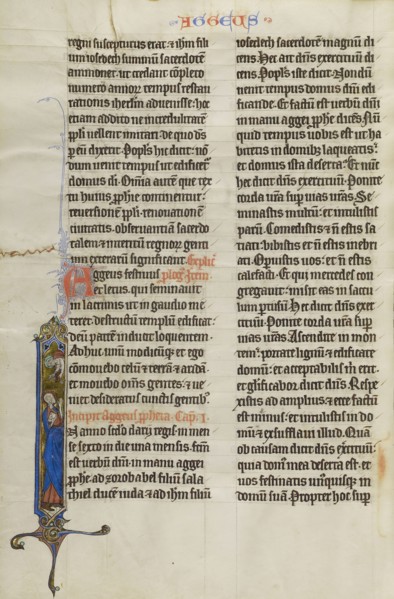 AGGEUS
regni suscepturus erat. & ihm fili
um iosedech summū sacerdotē
ammoner. ut credant cōpleto
numero annor tempus restau
rationis iherlm aduenisse. hoc
etiam addito ne incredulitatē
ppli uellent imitari. de quo dns
p eū dixerat. Popls hic dicit. nō
dum uenit tempus ut edificet
domus dni. Omīa autē que tex
tu huius pphie continentur.
reuersionē ppli. renouationē
ciuitatis. obseruantiā sacerdo
talem. & interitū regnor genti
um exterarū significant. Explic
Aggeus festiuus plog. Item
& letus. qui seminauit
in lacrimis ut in gaudio me
teret. destructū templū edificat.
deū patrē inducit loquentem.
Adhuc unū modicūque. et ego
cōmouebo celū & terrā & aridā.
et mouebo oms gentes. & ue
niet desideratus cunctis gentib.
Incipit Aggeus ppheta. Cap. I.
N anno scdo darii regis. in men
se sexto in die una mensis. fcm
est uerbū dni. in manu aggei
pphe. ad zorobabel filiū sala
thiel ducē iuda. & ad ihm filiū
iosedech sacerdotē magnū. di
cens. Hec ait dns exercituū di
cens. Popls iste dicit. Nondū
uenit tempus domus dni edi
ficande. Et factū est uerbū dni
in manu aggei pphe dices. Nū
quid tempus uobis est ut ha
bitetis in domibz laqueatis.
et domus ista deserta. Et nūc
hec dicit dns exercituū. Ponite
corda ura sup uias uras. Se
minastis multū. et intulistis
parū. Comedistis. & n estis sa
tiati. bibistis. et n estis inebri
ati. Opuistis uos. et n estis
calefacti. Et qui mercedes con
gregauit. misit eas in saccu
lum ptusū. Hec dicit dns exer
cituū. Ponite corda ura sup
uias uras. Ascendite in mon
tem. portate lignū. & edificate
domū. et acceptabilis m erit.
et glificabor dicit dns. Respe
xistis ad amplius. & ecce factū
est minus. et intulistis in do
mū. & exsufflaui illud. Quā
ob causam dicit dns exercituū.
quia domus mea deserta est. et
uos festinatis unusquisque in
domū suā. Propter hoc sup